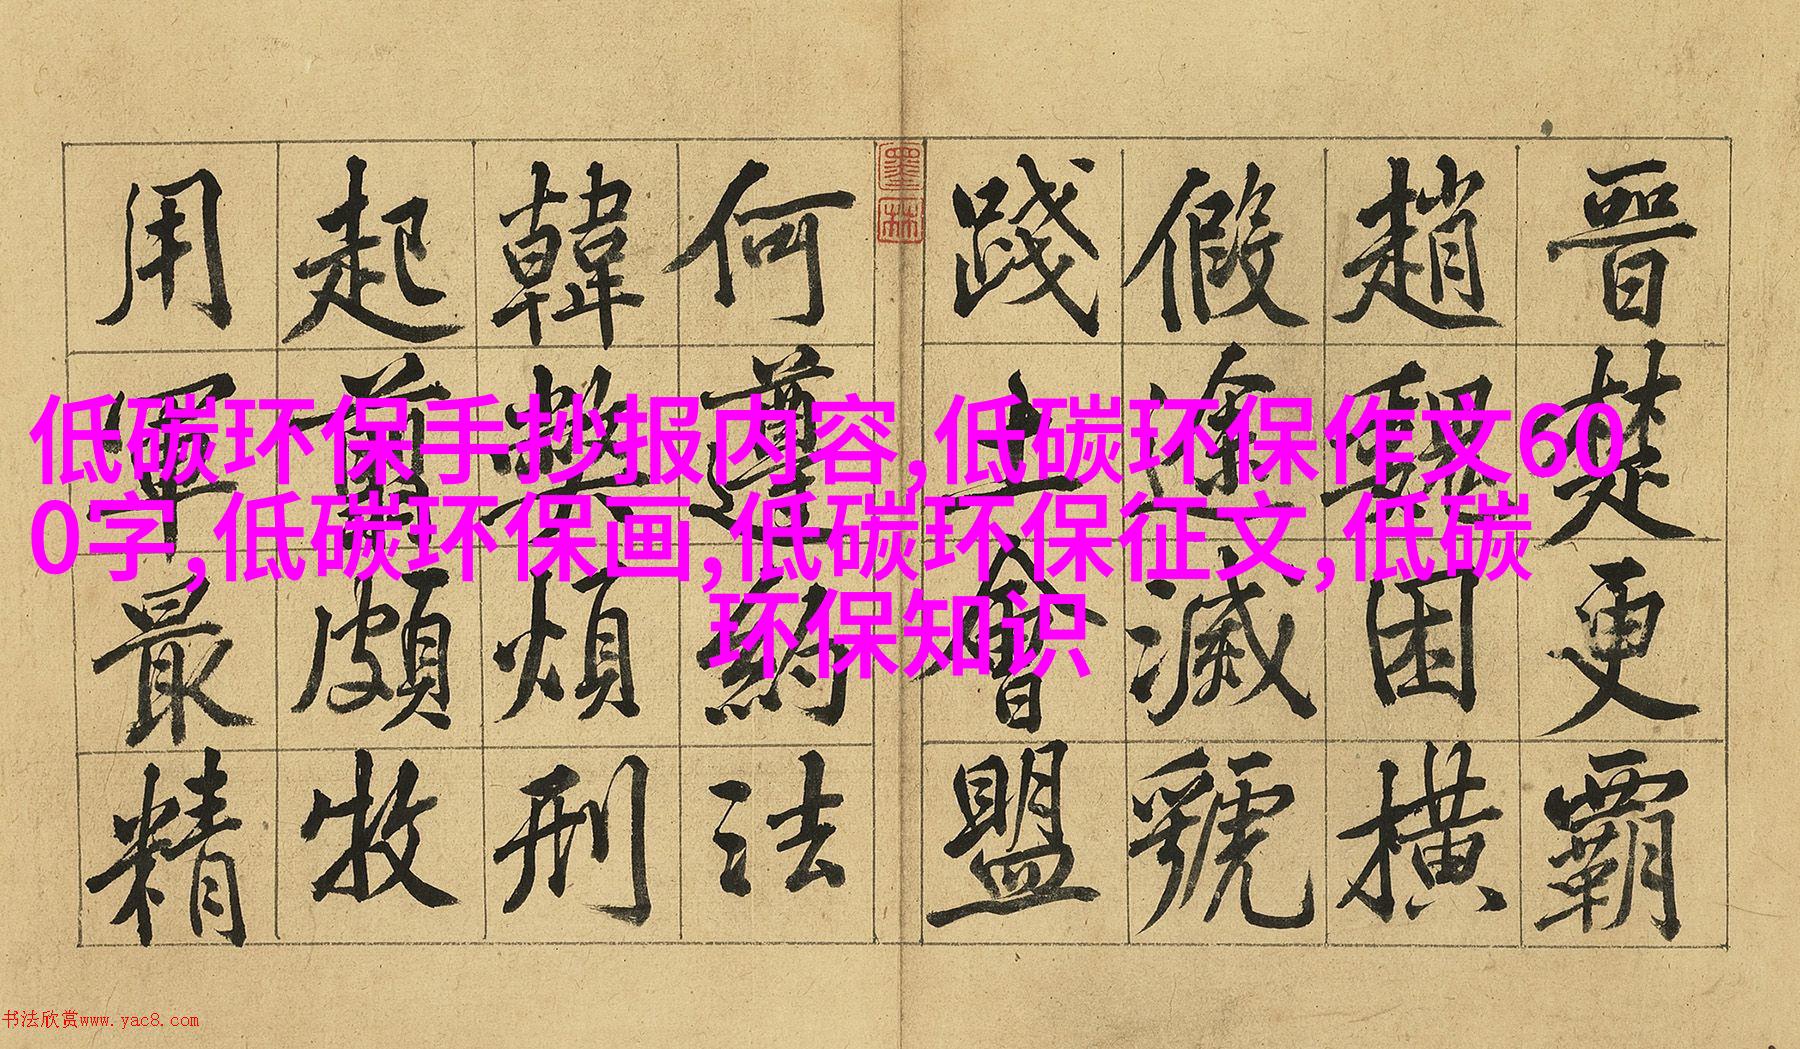 晉楚更霸
趙魏困橫
假途滅虢
踐土會盟
何遵約法
韓弊煩刑
起翦頗牧
用軍最精
墨林
低碳环保手抄报内容,低碳环保作文60
0字,低碳环保画,低碳环保征文,低碳
环保知识
书法欣赏www.yac8.com